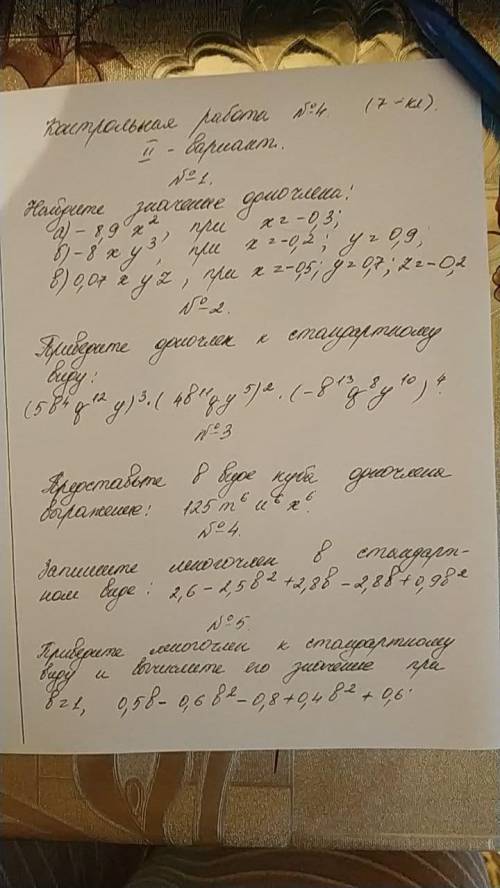 Контрольная работа №4. (7-кл).
II - вариант.
№1.
Найдите значение одночлена:
а) -8,9 x², при x=-0,3;
б) -8 x y³, при x=-0,2; y=0,9;
в) 0,07 x y z, при x=-0,5; y=0,7; z=-0,2
№2.
Приведите одночлен к стандартному
виду:
(5b⁴ q¹² y)³·(4b¹¹ q y⁵)²·(-b¹³ q⁸ y¹⁰)⁴.
№3
Представьте в виде куба одночлена
выражение: 125 m⁶ n⁶ x⁶.
№4.
Запишите многочлен в стандарт-
ном виде: 2,6-2,5b²+2,8b-2,8b+0,9b²
№5.
Приведите многочлен к стандартному
виду и вычислите его значение при
b=1, 0,5b-0,6b²-0,8+0,4b²+0,6.